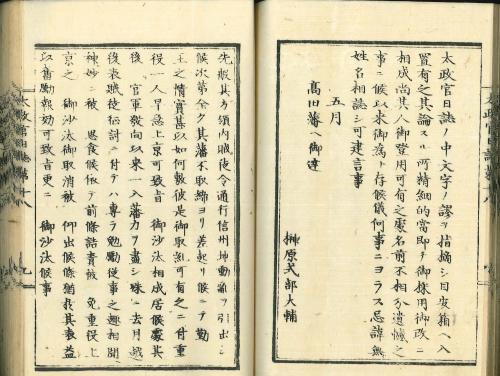 太政官日誌ノ中文字ノ謬ヲ指摘シ目安箱ヘ入
置有之其論スル所精細的當即チ御採用御改ニ
相成尚其人御登用可有之處名前不相分遺憾之
事ニ候以来御為ト存候儀何事ニヨラス忌諱無
姓名相認シ可建言事
五月
高田藩ヘ御達
榊原式部大輔
先般其方領内賊徒令通行信州地動揺ヲ引出シ
候次第全ク其藩不取締ヨリ差起リ候ニテ勤
王之情實甚以如何敷彼是御取糺可有之ニ付重
役一人早急上京可致旨 御沙汰相成居候處其
後 官軍發向以来一入藩力ヲ盡シ殊ニ去月越
後表賊徒征討ニ付テハ専ラ勉勵従事之趣相聞
神妙ニ被 思食候依テ前條詰責被 免重役上
京之 御沙汰御取消被 仰出候條猶我其事益
以奮勵報効可致旨更ニ 御沙汰候事
太政官日誌第十八
九